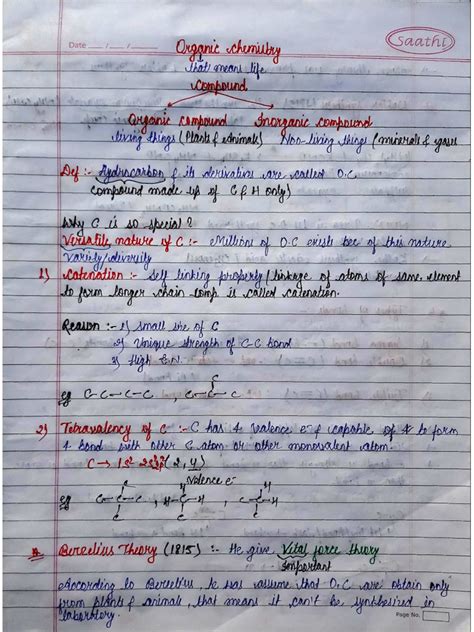 Saathi
Date __/__/__
Organic chemistry
that means life
Compound
Organic compound Inorganic compound
living things (Plants & Animals) Non-living things (minerals & gases
Def :- Hydrocarbon & its derivatives are called O.C
compound made up of C & H only)
Why C is so special?
Versatile nature of C :- Millions of O.C exists bec of this nature
Variety/diversity
1) Catenation :- Self linking property/linkage of atoms of same element
to form longer chain comp. is called catenation.
Reason :- 1) Small size of C
2) Unique strength of C-C bond
3) High E.N.
eg C-C-C-C , C-C-C
C
2) Tetravalency of C :- C has 4 valence e⁻ & capable of 4 to form
4 bond with other C atom or other monovalent atom.
C → 1s² 2s² 2p² (2, 4)
Valence e⁻
eg C-C-C , H-C-H , C-C-H
Berzelius Theory (1815) :- He give Vital force theory
Important
According to Berzelius, he was assume that O.C are obtain only
from plants & animals, that means it can't be synthesized in
laboratory.
Page No.